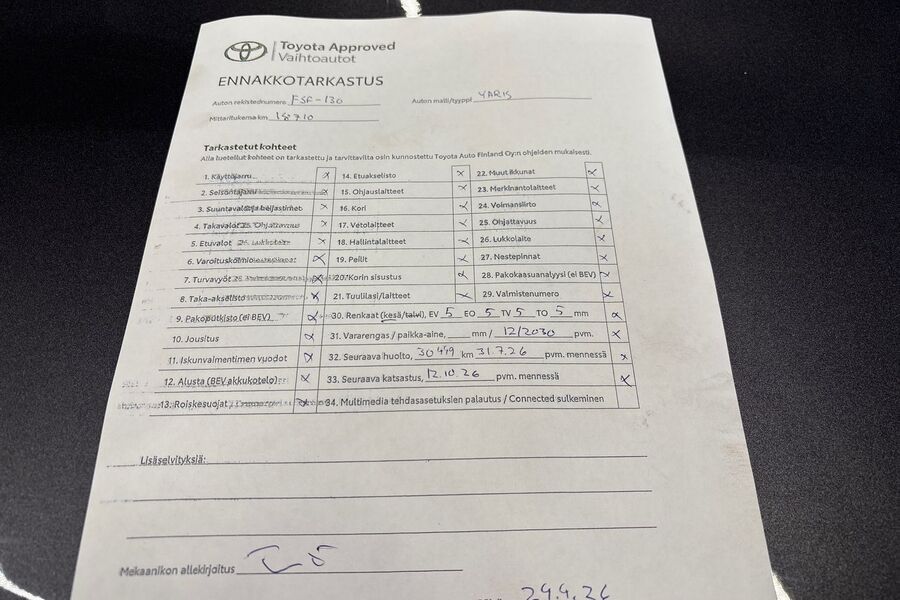 Toyota Approved
Vaihtoautot
ENNAKKOTARKASTUS
Auton rekisterinumero FSF-130
Auton malli/tyyppi YARIS
Mittarilukema km 18710
Tarkastetut kohteet
Alla luetellut kohteet on tarkastettu ja tarvittavilta osin kunnostettu Toyota Auto Finland Oy:n ohjeiden mukaisesti.
1. Käyttöjarru x
2. Seisontajarru x
3. Suuntavalot ja heijastimet x
4. Takavalot x
5. Etuvalot x
6. Varoituskolmio x
7. Turvavyöt x
8. Taka-akselisto x
9. Pakoputkisto (ei BEV) x
10. Jousitus x
11. Iskunvaimentimen vuodot x
12. Alusta (BEV akkukotelo) x
13. Roiskesuojat x
14. Etuakselisto x
15. Ohjauslaitteet x
16. Kori x
17. Vetolaitteet x
18. Hallintalaitteet x
19. Peilit x
20. Korin sisustus x
21. Tuulilasi/laitteet x
22. Muut ikkunat x
23. Merkinantolaitteet x
24. Voimansiirto x
25. Ohjattavuus x
26. Lukkolaite x
27. Nestepinnat x
28. Pakokaasuanalyysi (ei BEV) x
29. Valmistenumero x
30. Renkaat (kesä/talvi), EV 5 EO 5 TV 5 TO 5 mm x
31. Vararengas / paikka-aine, mm / 12/2030 pvm. x
32. Seuraava huolto, 30449 km 31.7.26 pvm. mennessä x
33. Seuraava katsastus, 12.10.26 pvm. mennessä x
34. Multimedia tehdasasetuksien palautus / Connected sulkeminen
Lisäselvityksiä:
Mekaanikon allekirjoitus
29.4.26